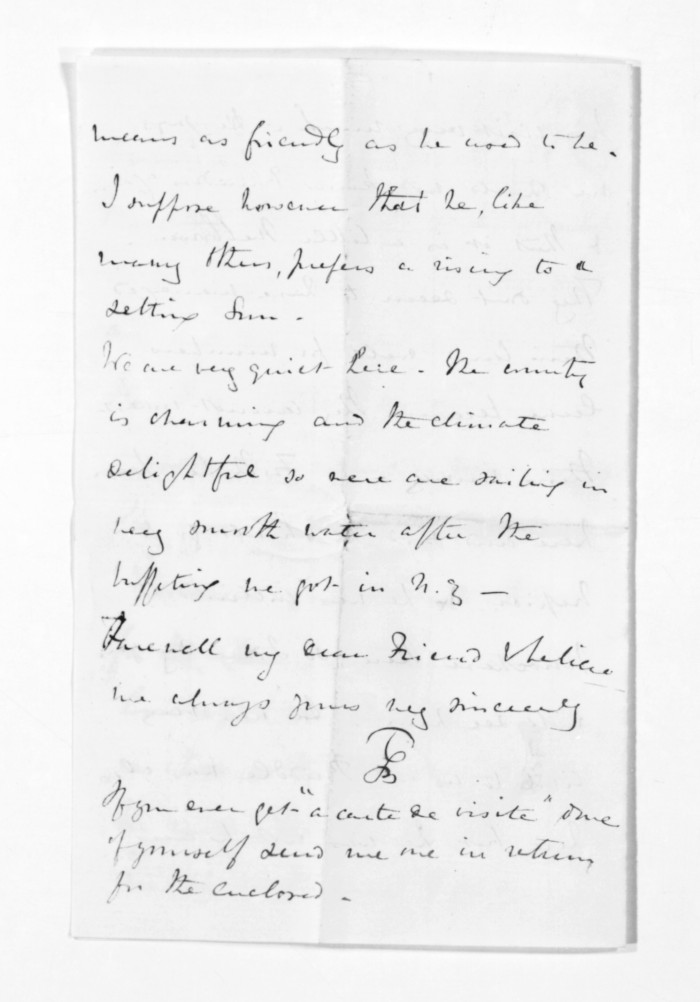 means as friendly as he used to be.
I suppose however that he, like
many others, prefers a rising to a
setting Sun.
We are very quiet here. The country
is charming and the climate
delightful so we are sailing in
very smooth water after the
buffeting we got in N.Z —
Farewell my dear Friend & believe
me always yours very sincerely
If you ever get "a carte de visite" done
of yourself send me one in return
for the enclosed.